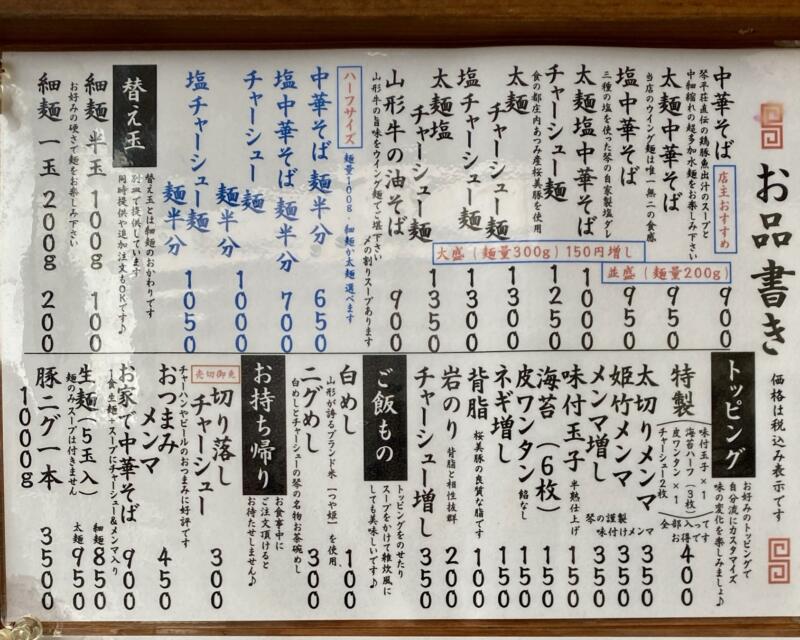 お品書き
価格は税込み表示です
中華そば 900
店主おすすめ
琴平荘直伝の鶏豚魚出汁のスープと
中細縮れの超多加水麺をお楽しみ下さい
太麺中華そば 950
当店のウイング麺は唯一無二の食感
塩中華そば 950
三種の塩を使った琴の自家製塩ダレ
太麺塩中華そば 1000
チャーシュー麺 1250
食の都庄内あつみ産桜美豚を使用
太麺チャーシュー麺 1300
塩チャーシュー麺 1300
太麺塩チャーシュー麺 1350
並盛(麺量200g)
大盛(麺量300g)150円増し
山形牛の油そば 900
山形牛の旨味をウイング麺でご堪下さい
〆の割りスープあります
ハーフサイズ
麺量100g 細麺か太麺選べます
中華そば 麺半分 650
塩中華そば 麺半分 700
チャーシュー麺 麺半分 1000
塩チャーシュー麺 麺半分 1050
替え玉
替え玉とは細麺のおかわりです
別皿で提供しています
同時提供や追加注文もOKです♪
細麺 半玉 100g 100
お好みの硬さで麺をお楽しみ下さい
細麺 一玉 200g 200
トッピング
お好みのトッピングで
自分流にカスタマイズ
味の変化を楽しみましょ♪
特製 400
味付玉子×1
海苔ハーフ(3枚)
皮ワンタン×1
チャーシュー2枚
全部入って
お得です
太切りメンマ 350
姫竹メンマ 350
メンマ増し 350
琴の謹製
味付けメンマ
味付玉子 半熟仕上げ 150
海苔(6枚) 150
皮ワンタン 餡なし 150
ネギ増し 150
背脂 桜美豚の良質な脂です 100
岩のり 背脂と相性抜群 200
チャーシュー増し 350
ご飯もの
トッピングをのせたり
スープをかけて雑炊風に
しても美味しいです♪
白めし 100
山形が誇るブランド米「つや姫」を使用
ニグめし 300
白めしとチャーシューの琴の名物お茶碗めし
お持ち帰り
お食事中に
ご注文頂けると
お待たせしません♪
売切御免
切り落しチャーシュー 300
チャーハンやビールのおつまみに好評です
おつまみメンマ 450
お家で中華そば 900
1食生麺+スープにチャーシュー&メンマ入り
生麺(5玉入) 細麺850 太麺950
麺のみスープは付きません
豚ニグ一本 1000g 3500